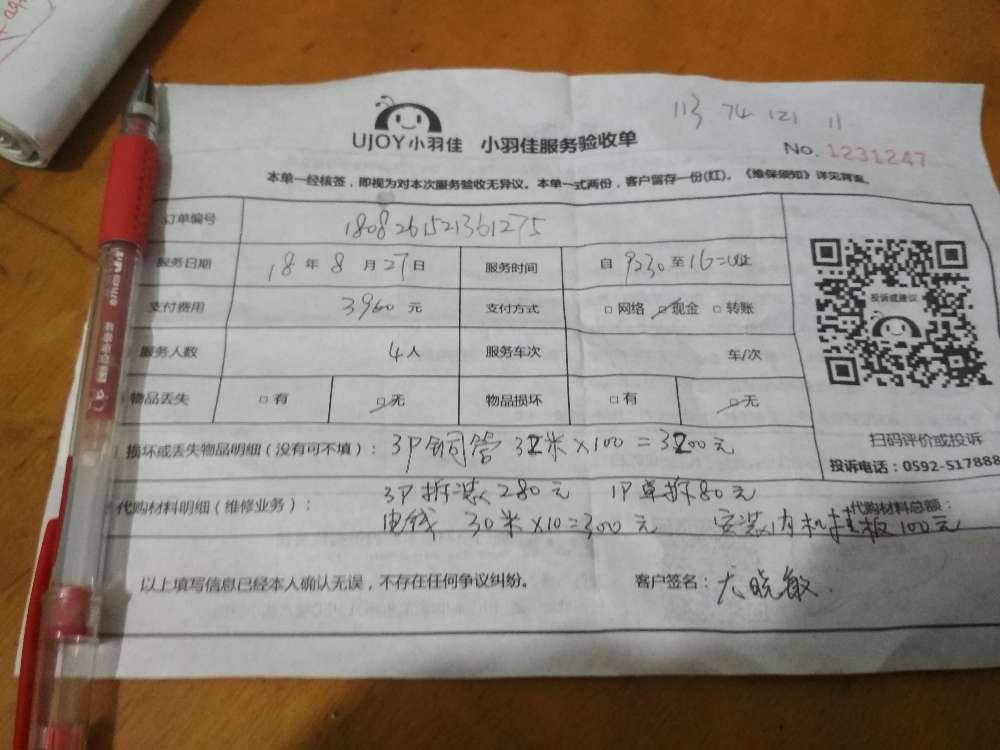 113 74 121 11
UJOY小羽佳 小羽佳服务验收单
No. 1231247
本单一经核签，即视为对本次服务验收无异议。本单一式两份，客户留存一份(红)。《维保须知》详见背面。
订单编号 1808261521361275
服务日期 18 年 8 月 27 日 服务时间 自 9230 至 16 止
支付费用 3960 元 支付方式 □ 网络 □ 现金 □ 转账
服务人数 4 人 服务车次 车/次
物品丢失 □ 有 □ 无 物品损坏 □ 有 □ 无
投诉或建议
扫码评价或投诉
投诉电话：0592-517888
损坏或丢失物品明细（没有可不填）： 3P铜管 32米×100=3200元
3P拆装 280元 1P单拆80元
代购材料明细（维修业务）： 代购材料总额：
电线 30米×10=300元 安装内机挂板100元
以上填写信息已经本人确认无误，不存在任何争议纠纷。 客户签名： 尤晓敏